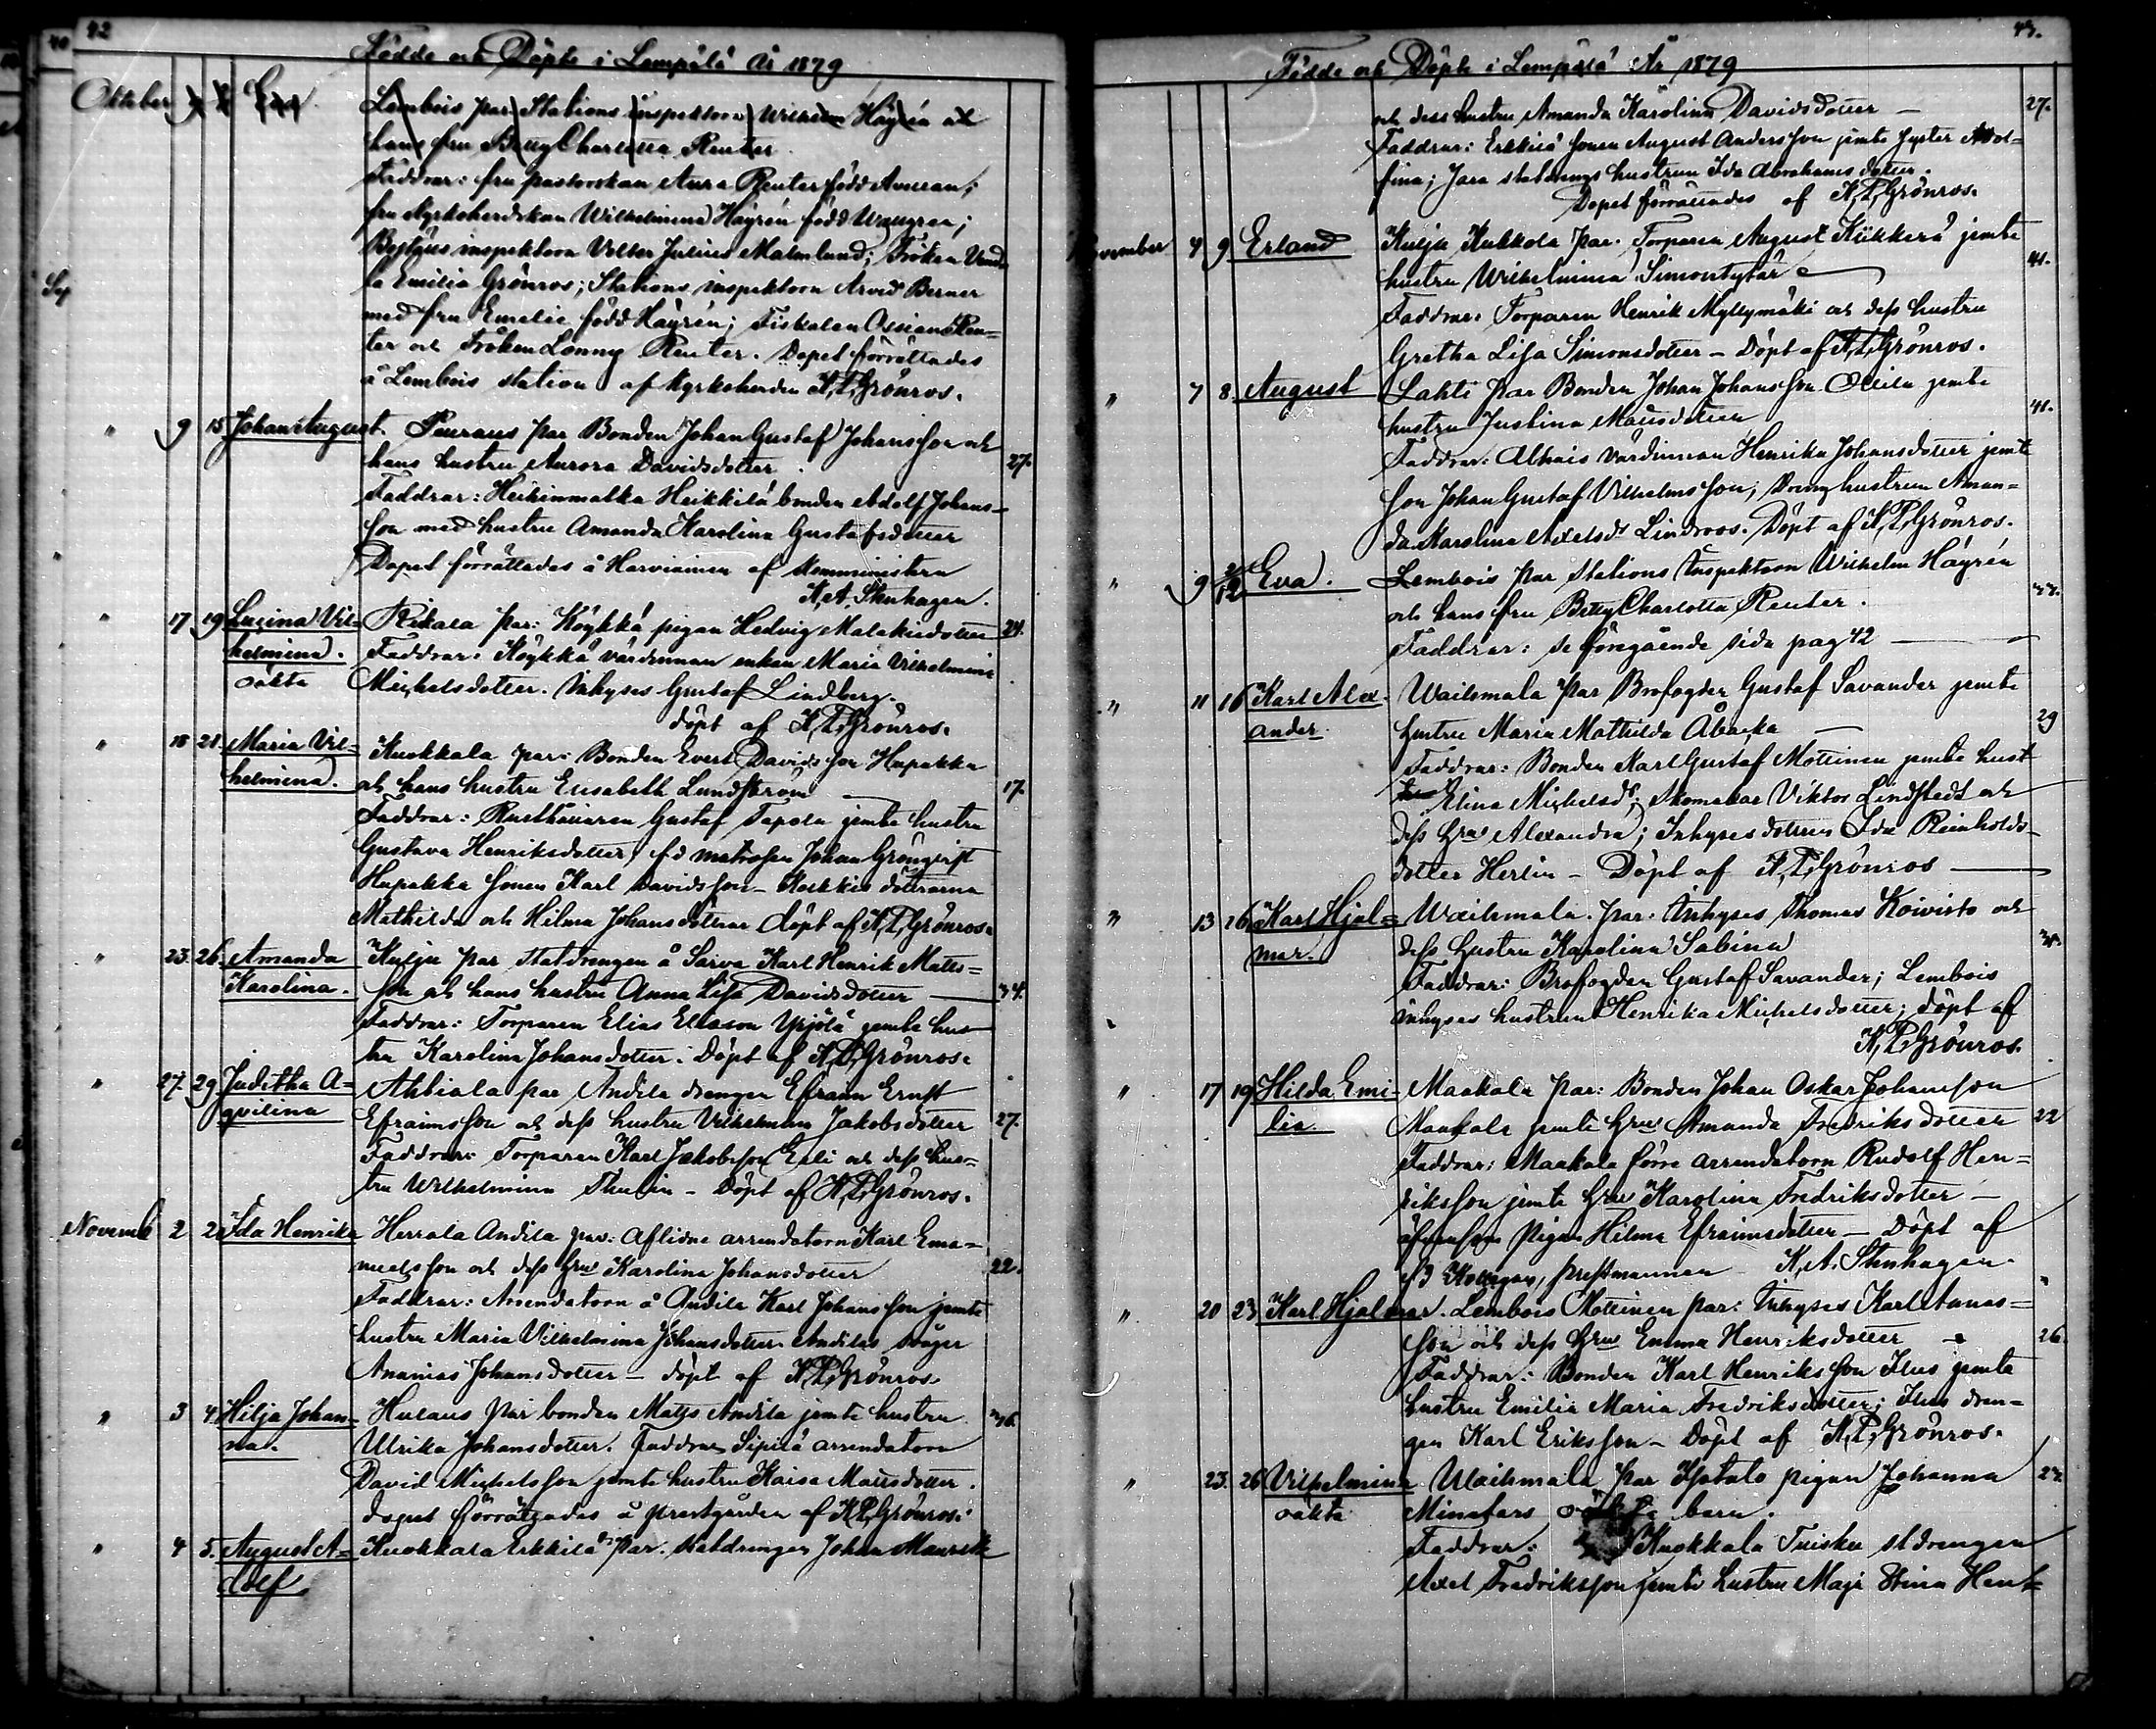 42
Födde och Döpte i Lempälä År 1879
Oktober 9 Eva Lembois par Stations inspektoren Wilhelm Häyrén och
hans fru Betty Charlotta Reuter
Faddrar: fru pastorskan Aura Reuter född
fru Kyrkoherdskan Wilhelmina Häyrén född
inspektoren Volter Julius Malmlund; Fröken
la Emilia Grönros; Stations inspektoren Arvid Berner
med fru Emelie född Häyrén; Fiskalen Ossian Reu-
ter och Fröken Lonny Reuter. Dopet förrättades
å Lembois station af Kyrkoherden K,P,Grönros.
" 9 15 Johan August. Peuraus par Bonden Johan Gustaf Johansson och
hans hustru Aurora Davidsdotter 27.
Faddrar: Heikinmatka Heikkilä bonden Adolf Johans-
son med hustru Amanda Karolina Gustafsdotter
Dopet förrättades å Herviainen af Komministern
K,A, Stenhagen.
" 17 19 Lucina Vil- Rikala par: Köykkä pigan Hedvig Malakiedotter 24.
helmina. Faddrar: Köykkä värdinnan enkan Maria Vilhelmina
oäkta Michelsdotter. Inhyses Gustaf Lindberg.
döpt af K,P,Grönros.
" 18 21. Maria Vil- Kuokkala par: Bonden Evert Davidsson Hupakka
helmina. och hans hustru Elisabeth Lundström 17.
Faddrar: Rusthållaren Gustaf Tapola jemte hustru
Gustava Henriksdotter, fd matrosen Johan Grönqvist
Hupakka sonen Karl Davidsson - döttrarna
Mathilda och Hilma Johansdöttrar döpt af K,P,Grönros.
" 23. 26. Amanda Kulju par Statdrengen å Sarva Karl Henrik Matts-
Karolina. son och hans hustru Anna Lisa Davidsdotter 34.
Faddrar: Torparen Elias Eliasson Yrjölä jemte hus-
tru Karolina Johansdotter. Döpt af K,P,Grönros.
" 27. 29 Juditha A- Ahtiala par Andila drengen Efraim Ernst
qvilina Efraimsson och dess hustru Vilhelmina Jakobsdotter 27.
Faddrar: Torparen Karl Jakobsson Erli och dess hus-
tru Wilhelmina Thulin - Döpt af K,P,Grönros.
Novemb 2 2 Ida Henrika Herrala Andila par: Aflidne arrendatorn Karl Ema-
nuelsson och dess hru Karolina Johansdotter 22.
Faddrar: Arrendatorn å Andila Karl Johansson jemte
hustru Maria Vilhelmina Johansdotter Andilas svåger
Ananias Johansdotter - döpt af K,P,Grönros
" 3 4 Hilja Johan- Hulaus par bonden Matts Andila jemte hustru
na. Ulrika Johansdotter. Faddrar Sipilä arrendatorn
David Michelsson jemte hustru Kaisa Mattsdotter.
dopet förrättades å prestgården af K,P,Grönros.
" 4 5. August A- Kuokkala Erkkilä par. statdrengen Johan
dolf
43.
Födde och Döpte i Lempälä År 1879
och dess hustru Amanda Karolina Davidsdotter - 27.
Faddrar: Erkkilä sonen August Andersson jemte syster Adol-
fina; Jara statdrengs hustrun Ida Abrahamsdotter.
Dopet förrättades af K,P,Grönros.
November 4 9 Erland Kulju Kukkola par. Torparen August Kukkola jemte
hustru Wilhelmina Simonsdotter 41.
Faddrar: Torparen Henrik Myllymäki och dess hustru
Gretha Lisa Simonsdotter - Döpt af K,P,Grönros.
" 7 8 August Lahti par Bonden Johan Johansson Ollila jemte
hustru Justina Mattsdotter 41.
Faddrar: Alhais värdinnan Henrika Johansdotter jemte
son Johan Gustaf Vilhelmsson; Drenghustrun Aman-
da Karolina Axelsdr Lindroos. Döpt af K,P,Grönros.
" 9 Eva. Lembois par Stations Inspektoren Wilhelm Häyrén
och hans fru Betty Charlotta Reuter.
Faddrar: se föregående sida pag 42
" 11 16 Karl Alex- Wailsmala par Brofogden Gustaf Savander jemte
ander. hustru Maria Mathilda Åbacka 29
Faddrar: Bonden Karl Gustaf Mottinen jemte hust
Elina Michelsdr; Skomakar Viktor Lindstedt och
dess hru Alexandra; Inhysesdottren Ida Reinholds-
dotter Herlin - Döpt af K,P,Grönros
" 13 16 Karl Hjal- Wailsmala. par. Inhyses Thomas Koivisto och
mar. dess hustru Karolina Sabina
Faddrar: Brofogden Gustaf Savander; Lembois
inhyses hustrun Henrika Michelsdotter; döpt af
K,P,Grönros.
" 17 19 Hilda Emi- Maakala par: Bonden Johan Oskar Johansson
lia. Maakala jemte hru Amanda Fredriksdotter 22
Faddrar: Maakala förre arrendatorn Rudolf Hen-
riksson jemte hru Karolina Fredriksdotter -
äfvensom pigan Hilma Efraimsdotter - Döpt af
K,A. Stenhagen.
" 20 23 Karl Hjalmar. Lembois Mottinen par: Inhyses Karl Ananias-
son och dess hru Emma Henriksdotter 26.
Faddrar: Bonden Karl Henriksson Ilus jemte
hustru Emilia Maria Fredriksdotter; Ilus dren-
gen Karl Eriksson - Döpt af K,P,Grönros.
" 23. 26 Vilhelmina Wailsmala par pigan Johanna
oäkta barn.
Faddrar: Kuokkala Tuisku st drengen
Axel Fredriksson jemte hustru Maja Stina Hen-